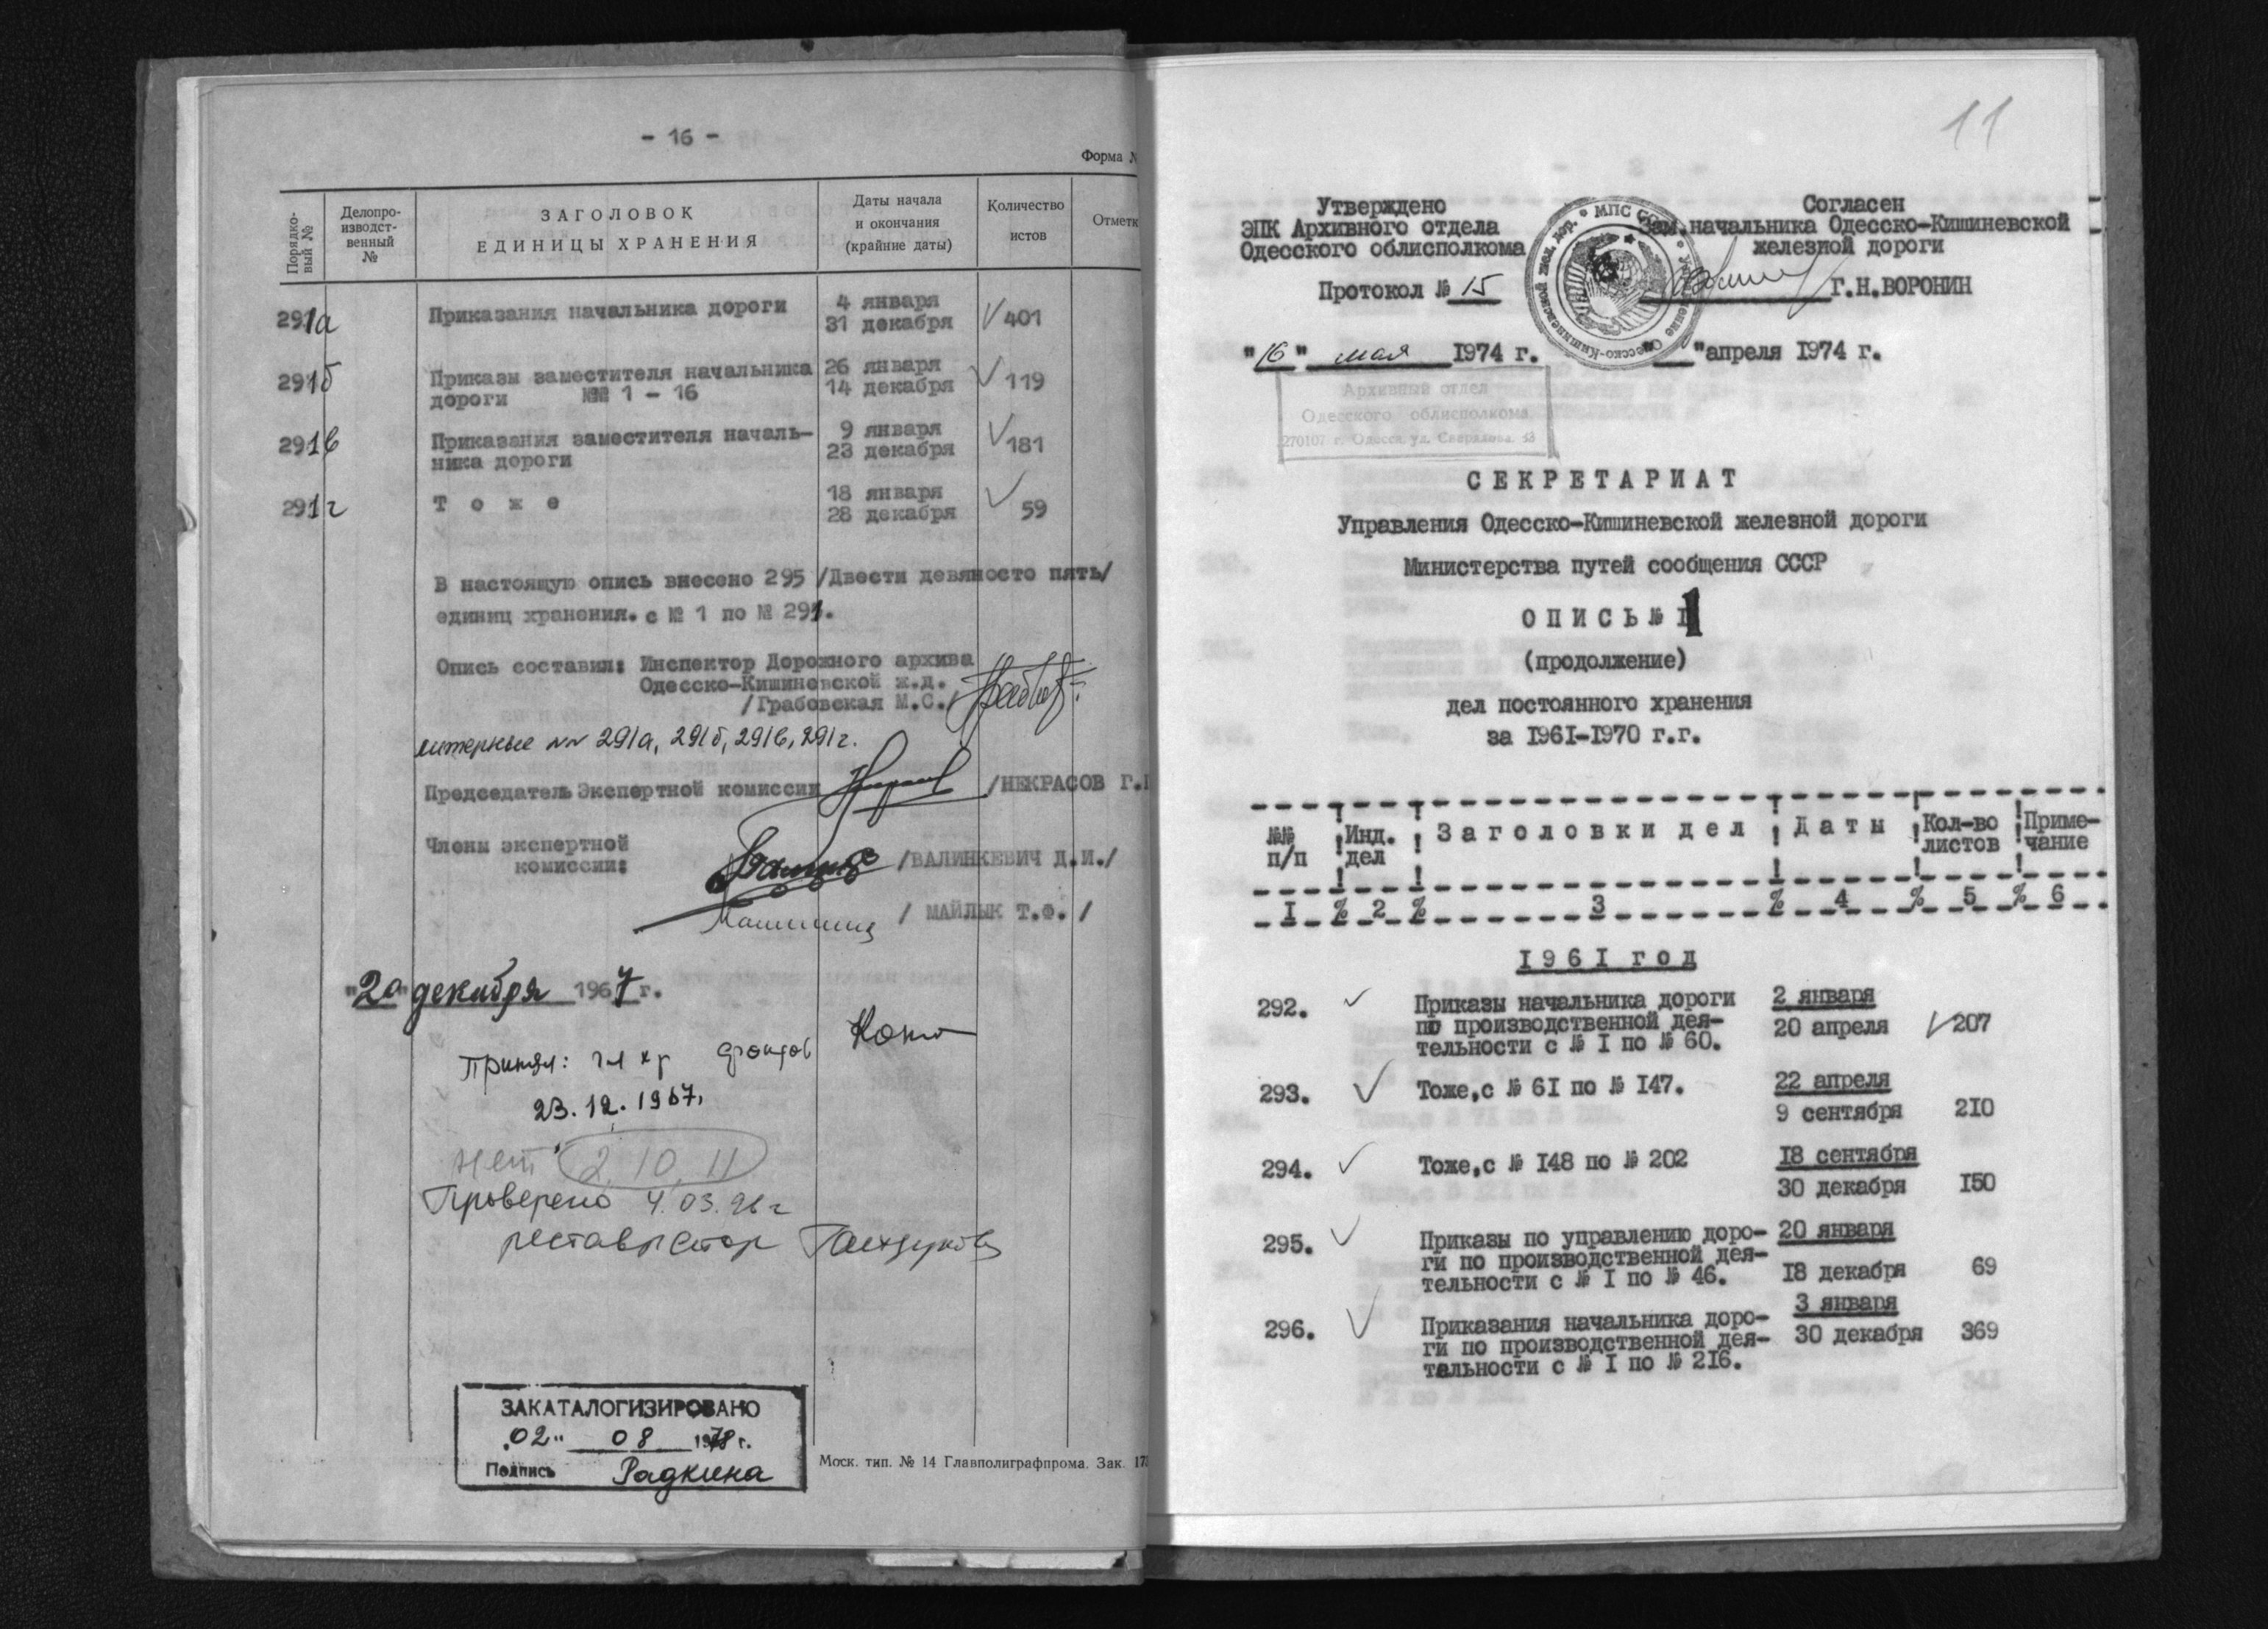 - 16 -
Форма №
Порядко-
вый №
Делопро-
изводст-
венный
№
ЗАГОЛОВОК
ЕДИНИЦЫ ХРАНЕНИЯ
Даты начала
и окончания
(крайние даты)
Количество
истов
Отметк
291а
Приказания начальника дороги
4 января
31 декабря
401
291б
Приказы заместителя начальника
дороги №№ 1 - 16
26 января
14 декабря
119
291в
Приказания заместителя началь-
ника дороги
9 января
23 декабря
181
291г
Т о ж е
18 января
28 декабря
59
В настоящую опись внесено 295 /Двести девяносто пять/
единиц хранения. с № 1 по № 291.
Опись составил: Инспектор Дорожного архива
Одесско-Кишиневской ж.д.
/Грабовская М.С./
литерные №№ 291а, 291б, 291в, 291г.
Председатель Экспертной комиссии /НЕКРАСОВ Г.
Члены экспертной
комиссии:
/ВАЛИНКЕВИЧ Д.И./
/ МАЙЛЫК Т.Ф. /
"20" декабря 1967 г.
Принял: гл хр фондов
23.12.1967.
Нет 2, 10, 11
Проверено 4.03.96 г
реставратор
ЗАКАТАЛОГИЗИРОВАНО
"02" 08 1978 г.
Подпись Радкина
Моск. тип. № 14 Главполиграфпрома. Зак. 17
11
Утверждено
ЭПК Архивного отдела
Одесского облисполкома
Протокол № 15
"16" мая 1974 г.
Согласен
Зам.начальника Одесско-Кишиневской
железной дороги
Г.Н.ВОРОНИН
" "апреля 1974 г.
Архивный отдел
Одесского облисполкома
270107 г. Одесса, ул. Свердлова,
СЕКРЕТАРИАТ
Управления Одесско-Кишиневской железной дороги
Министерства путей сообщения СССР
ОПИСЬ № 1
(продолжение)
дел постоянного хранения
за 1961-1970 г.г.
№№
п/п
Инд.
дел
Заголовки дел
Даты
Кол-во
листов
Приме-
чание
1 2 3 4 5 6
1961 год
292.
Приказы начальника дороги
по производственной дея-
тельности с № 1 по № 60.
2 января
20 апреля
207
293.
Тоже,с № 61 по № 147.
22 апреля
9 сентября
210
294.
Тоже,с № 148 по № 202
18 сентября
30 декабря
150
295.
Приказы по управлению доро-
ги по производственной дея-
тельности с № 1 по № 46.
20 января
18 декабря
69
296.
Приказания начальника доро-
ги по производственной дея-
тельности с № 1 по № 216.
3 января
30 декабря
369